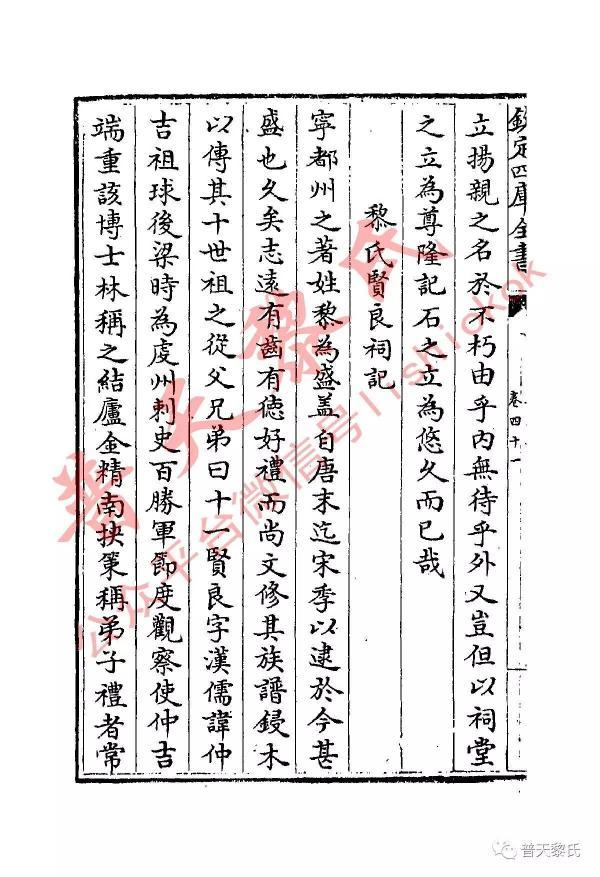 欽定四庫全書
卷四十一
立揚親之名於不朽由乎內無待乎外又豈但以祠堂
之立為尊隆記石之立為悠久而已哉
黎氏賢良祠記
寧都州之著姓黎為盛蓋自唐末迄宋季以逮於今甚
盛也久矣志遠有齒有德好禮而尚文修其族譜鋟木
以傳其十世祖之從父兄弟曰十一賢良字漢儒諱仲
吉祖球後梁時為虔州刺史百勝軍節度觀察使仲吉
端重該博士林稱之結廬金精南挾策稱弟子禮者常
普天黎氏
公众平台微信号lishickok
普天黎氏